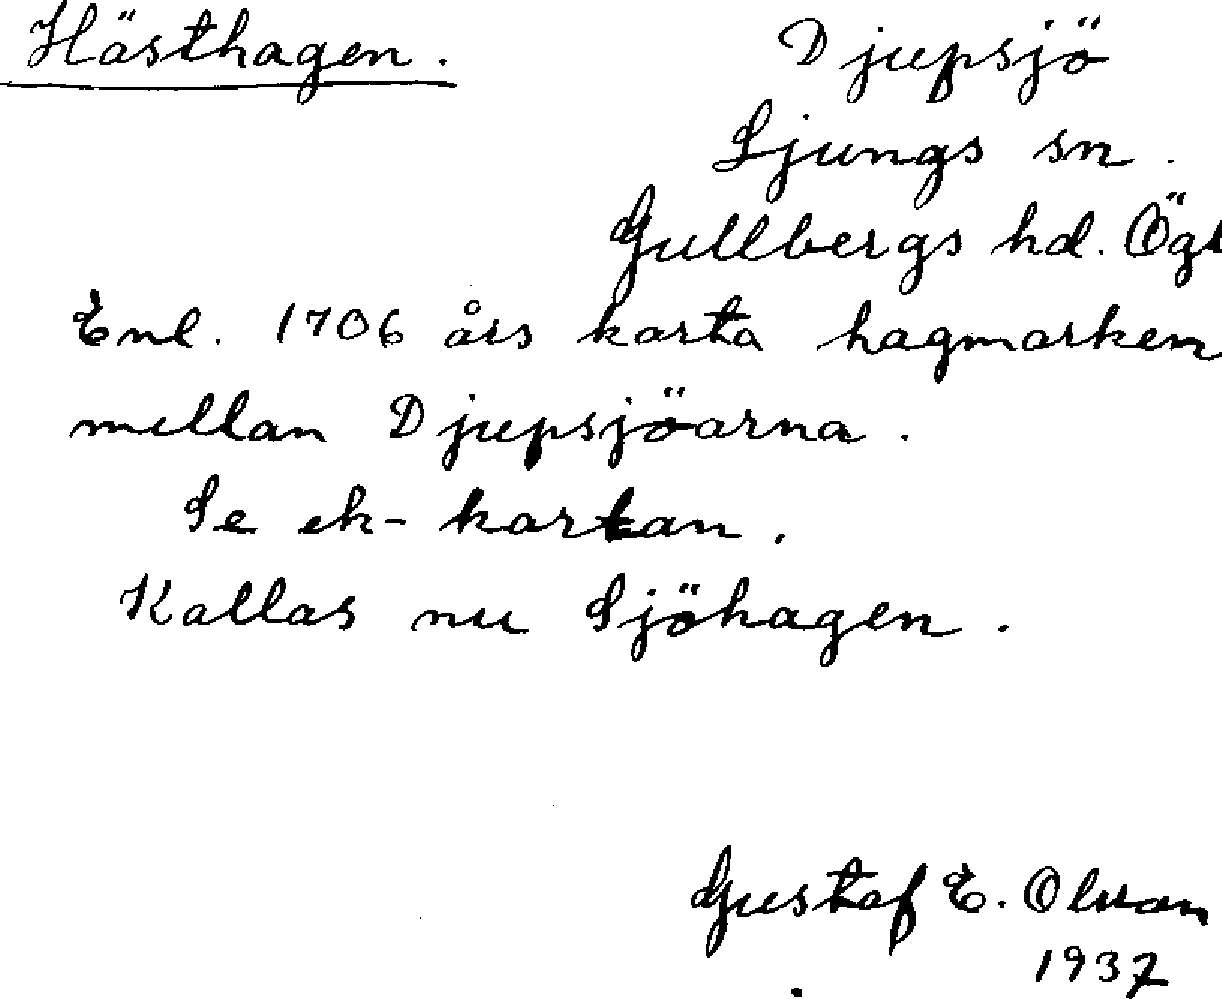 Hästhagen. Djupsjö
Ljungs sn.
Gullbergs hd. Ögl
Enl. 1706 års karta hagmarken
mellan Djupsjöarna.
Se ek-kartan.
Kallas nu Sjöhagen.
Gustaf E. Olsson
1937